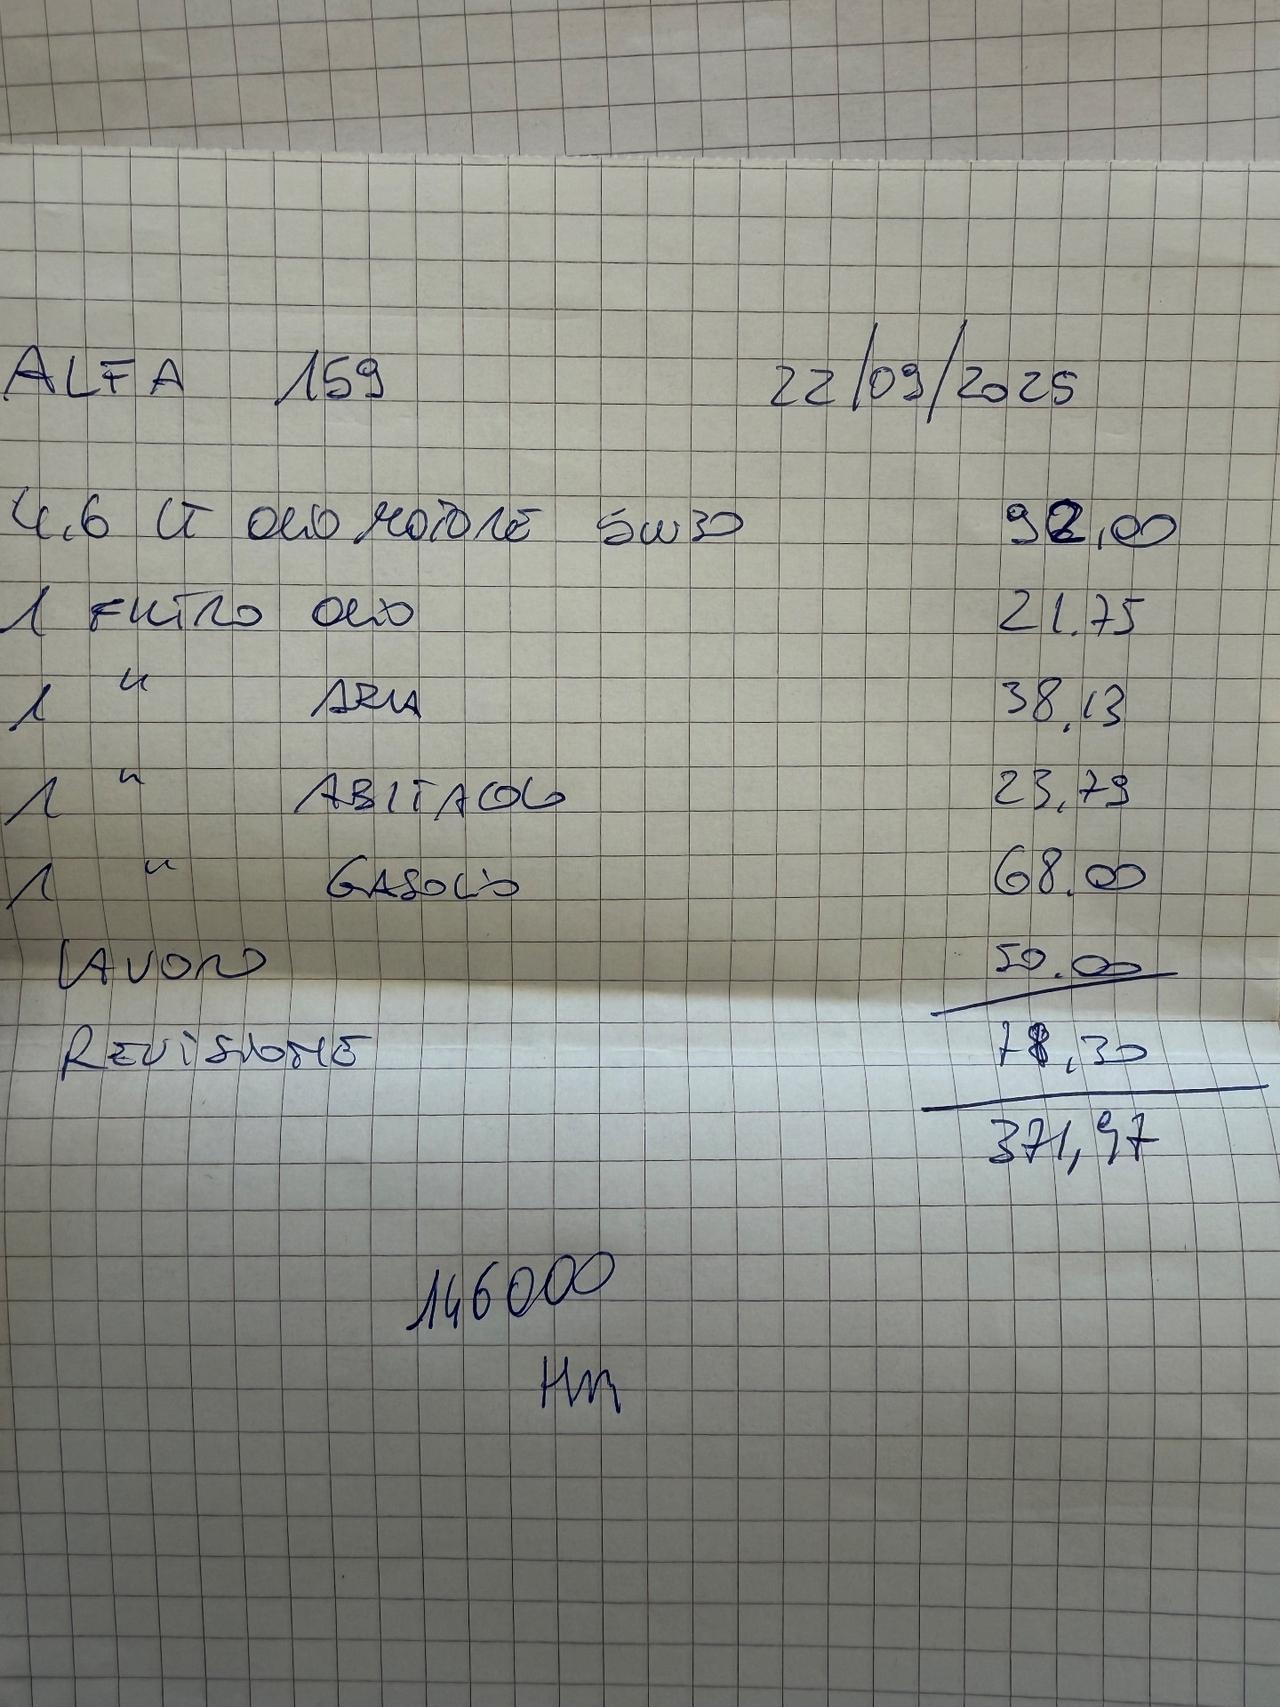 ALFA 159 22/09/2025
4.6 LT OLIO MOTORE 5W30 92,00
1 FILTRO OLIO 21.75
1 " ARIA 38,13
1 " ABITACOLO 23,79
1 " GASOLIO 68.00
LAVORO 50.00
REVISIONE 78,30
371,97
146000
Km